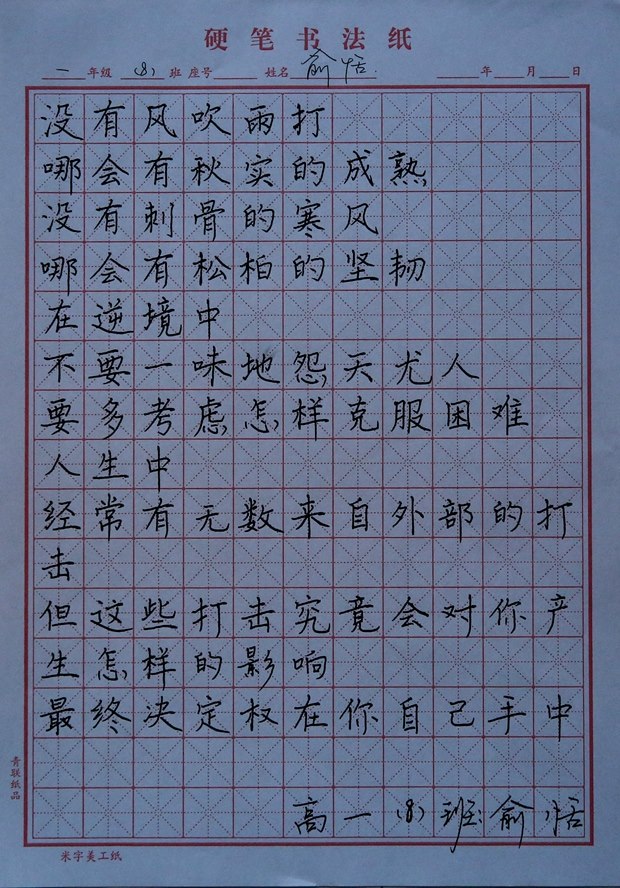 硬笔书法纸
一年级 (8)班 座号 姓名 俞恬 年 月 日
没有风吹雨打
哪会有秋实的成熟
没有刺骨的寒风
哪会有松柏的坚韧
在逆境中
不要一味地怨天尤人
要多考虑怎样克服困难
人生中
经常有无数来自外部的打
击
但这些打击究竟会对你产
生怎样的影响
最终决定权在你自己手中
高一(8)班:俞恬
青联纸品
米字美工纸